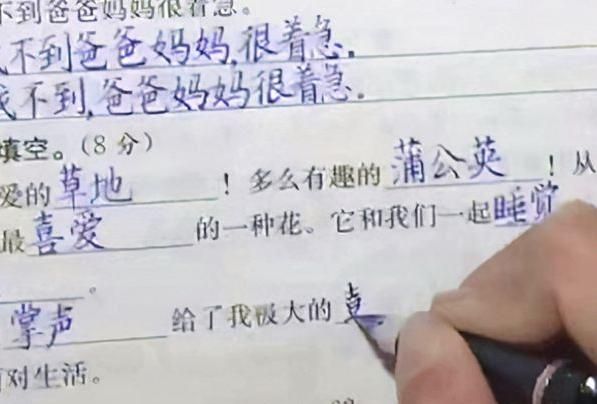 不到爸爸妈妈很着急。
不到爸爸妈妈,很着急。
我不到,爸爸妈妈很着急。
填空。(8分)
爱的草地!多么有趣的蒲公英!从
最喜爱的一种花。它和我们一起睡觉
。
掌声给了我极大的
对生活。